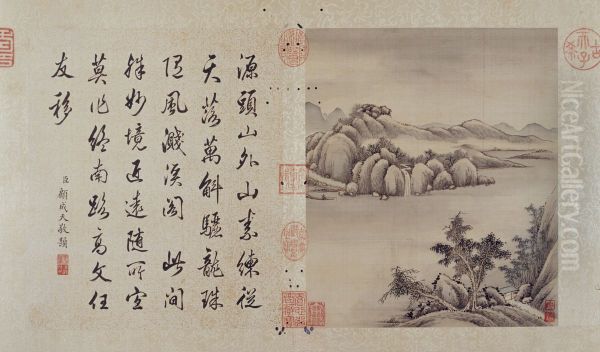 源頭山外山素練從
天落萬斛驪龍珠
風濺溪閣此間
殊妙境遠隨所宜
莫作終南路高文任
友移
臣顧成天敬題
古希天子
NiceArtGallery.com